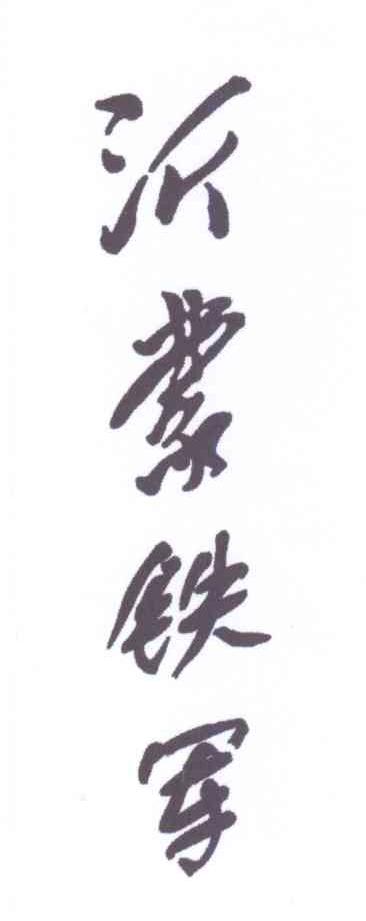 沂蒙铁军